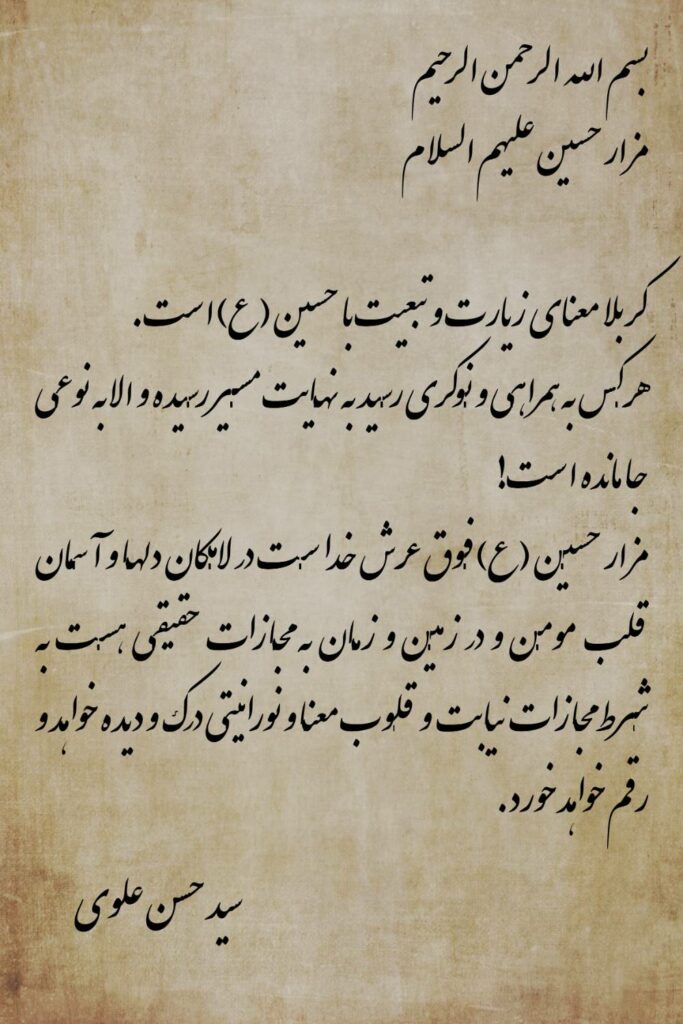 بسم الله الرحمن الرحیم
مزار حسین علیهم السلام
کربلا معنای زیارت و تبعیت با حسین (ع) است.
هر کس به همراهی و نوکری رسید به نهایت مسیر رسیده و الا به نوعی
جا مانده است!
مزار حسین (ع) فوق عرش خداست در لامکان دلها و آسمان
قلب مومن و در زمین و زمان به مجازات حقیقی هست به
شرط مجازات نیابت و قلوب معنا و نورانیتی درک و دیده خواهد و
رقم خواهد خورد.
سید حسن علوی